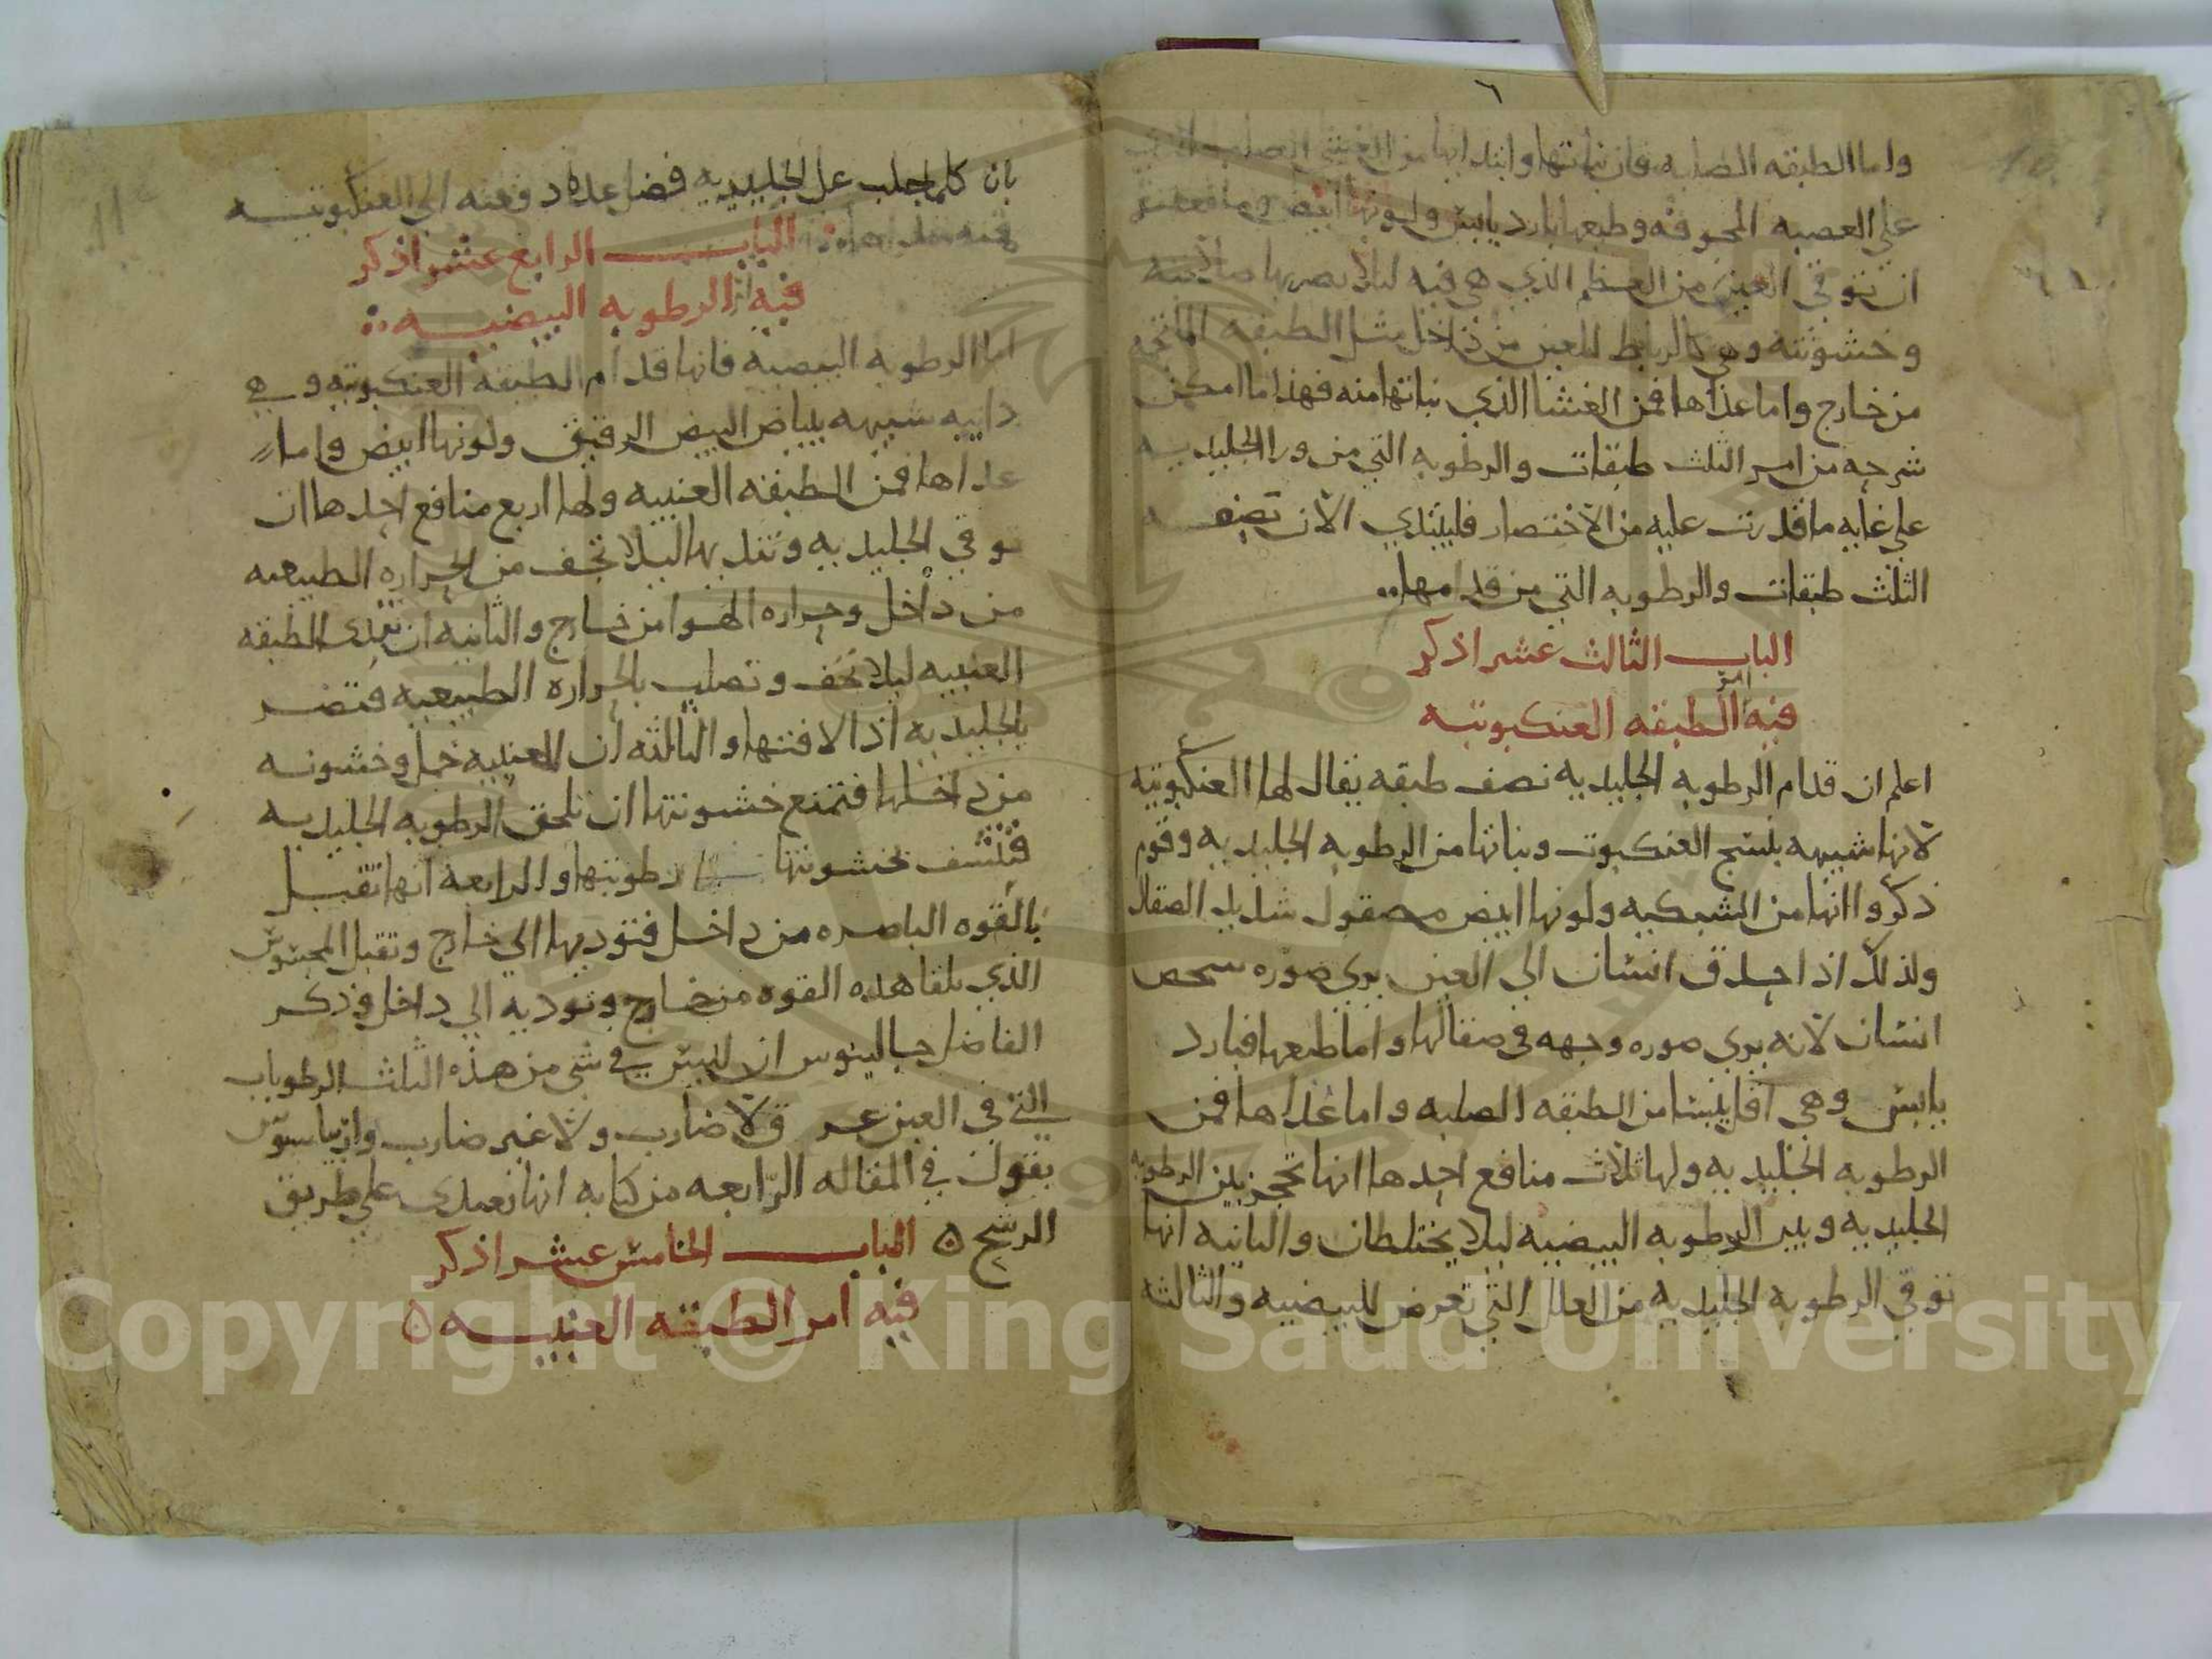 ٦
واما الطبقه الصلبه فان نباتها وابتداها من الغشا الصلب الذي
علي العصبه المجوفه وطبعها بارد يابس ولونها ابيض ومنفعتها
ان توقي العين من العظم الذي هي فيه ليلا يضربها صلابته
وخشونته وهي كالرباط للعين من داخل مثل الطبقه الملتحم
من خارج واما غذاها فمن الغشا الذي نباتها منه فهذا ما امكن
شرحه من امر الثلث طبقات والرطوبه التي من ورا الجليديه
علي غايه ما قدرت عليه من الاختصار فليبتدي الان نصف
الثلث طبقات والرطوبه التي من قدامها
الباب الثالث عشر اذكر
فيه امر الطبقه العنكبوتيه
اعلم ان قدام الرطوبه الجليديه نصف طبقه يقال لها العنكبوتيه
لانها شبيهه بنسج العنكبوت ونباتها من الرطوبه الجليديه وقوم
ذكروا انها من الشبكيه ولونها ابيض مصقول شديد الصقال
ولذلك اذا حدق انسان الي العين يري صوره شخص
انسان لانه يري صوره وجهه في صقالها واما طبعها فبارد
يابس وهي اقل يبسا من الطبقه الصلبه واما غذاها فمن
الرطوبه الجليديه ولها ثلاث منافع احدها انها تحجز بين الرطوبه
الجليديه وبين الرطوبه البيضيه ليلا يختلطان والثانيه انها
توقي الرطوبه الجليديه من العلل التي تعرض للبيضيه والثالثه
بان كلما جلب علي الجليديه فضل غذاء دفعته الي العنكبوتيه
الباب الرابع عشر اذكر
فيه الرطوبه البيضيه
اما الرطوبه البيضيه فانها قدام الطبقه العنكبوتيه وهي
دايبه شبيهه ببياض البيض الرقيق ولونها ابيض واما
غذاها فمن الطبقه العنبيه ولها اربع منافع احدها ان
توقي الجليديه وتنديها ليلا تجف من الحراره الطبيعيه
من داخل وحراره الهوا من خارج والثانيه ان تغذي الطبقه
العنبيه ليلا تجف وتصلب بالحراره الطبيعيه فتضر
بالجليديه اذا لاقتها والثالثه ان للعنبيه خمل وخشونه
من داخلها فتمنع خشونتها ان تلحق الرطوبه الجليديه
فتنشف بخشونتها رطوبتها والرابعه انها تقبل
بالقوه الباصره من داخل فتوديها الي خارج وتقبل المحسوس
الذي يلقا هذه القوه من خارج وتوديه الي داخل وذكر
الفاضل جالينوس ان ليس في شي من هذه الثلث الرطوبات
التي في العين عرق لا ضارب ولا غير ضارب واريباسوس
يقول في المقاله الرابعه من كتابه انها تغتذي علي طريق
الرشح ٥ الباب الخامس عشر اذكر
فيه امر الطبقه العنبيه ٥
Copyright © King Saud University